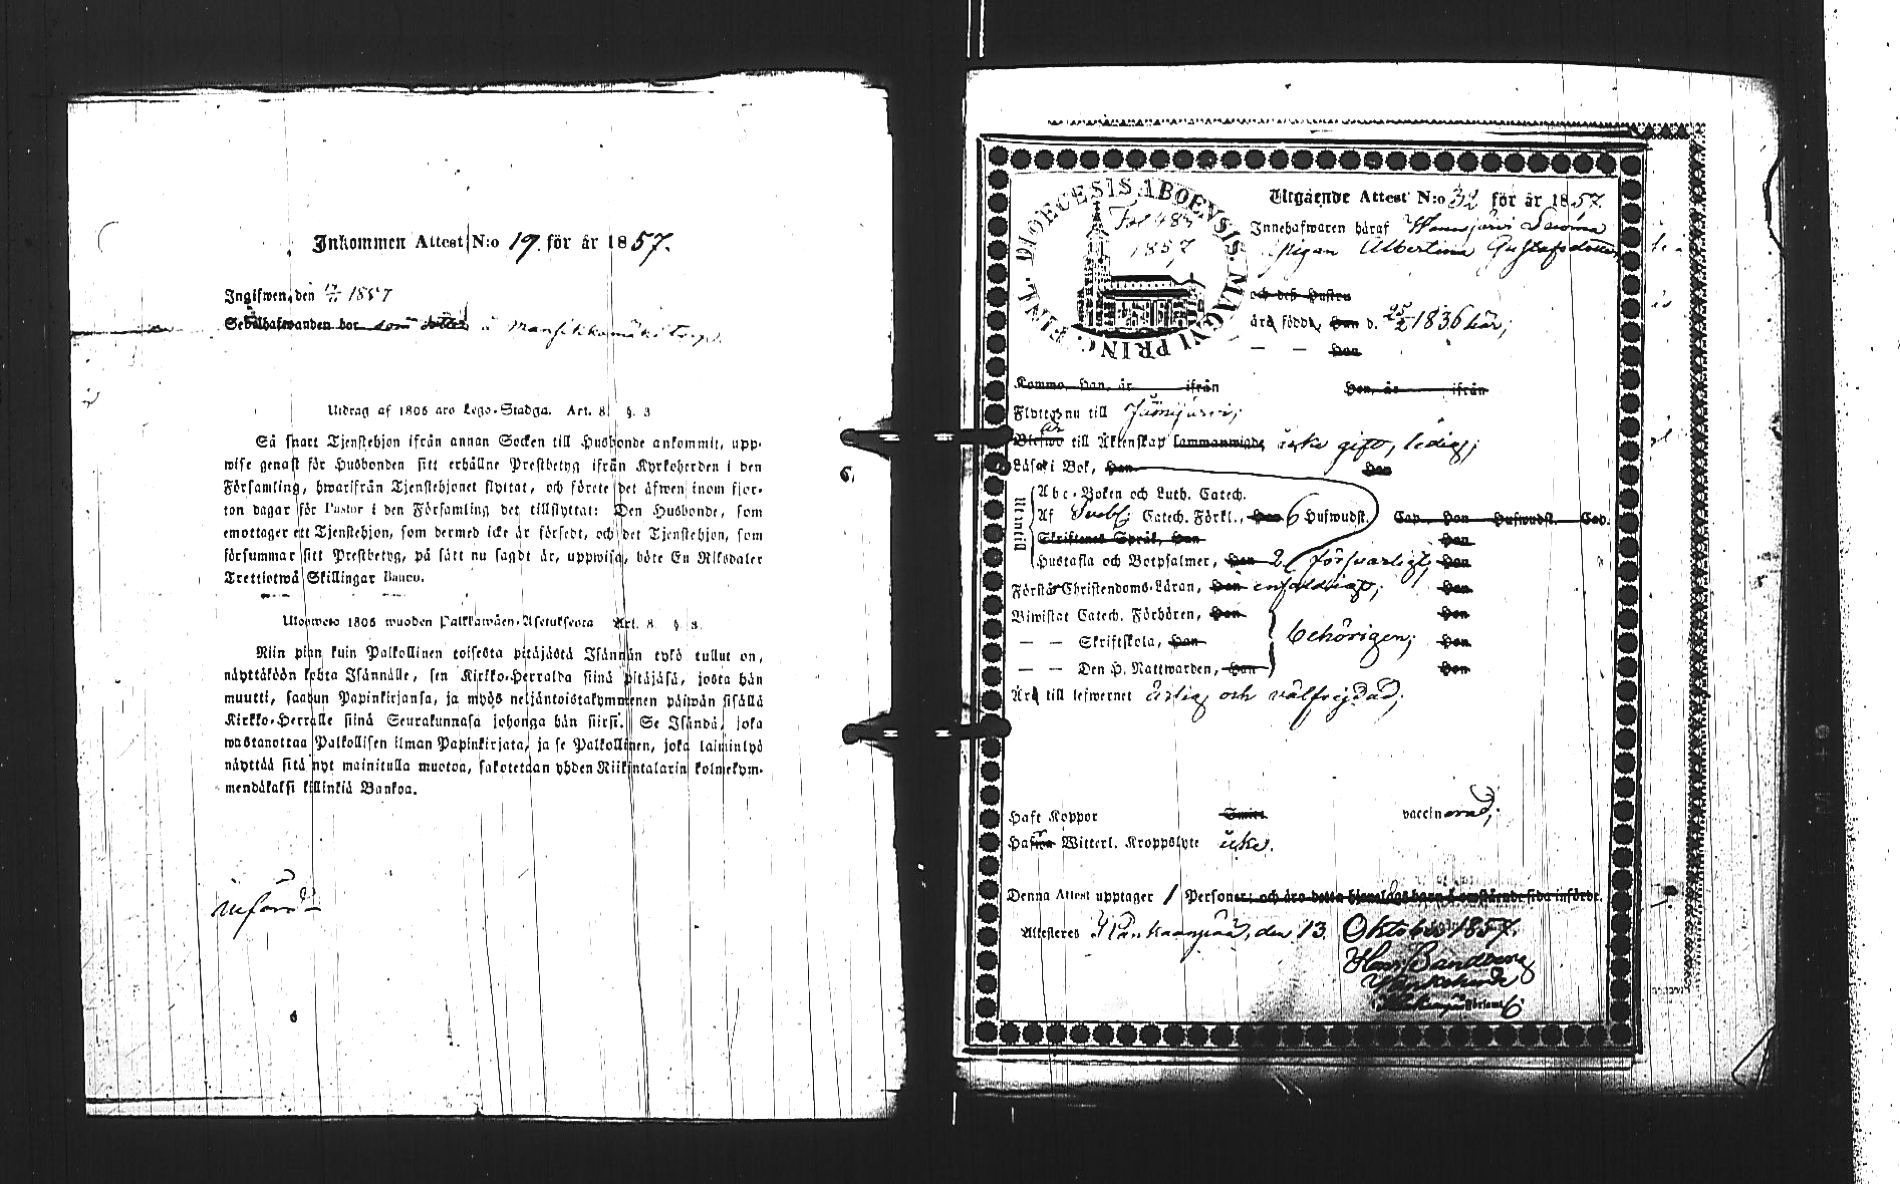 Inkommen Attest N:o 19. för år 1857.
Ingifwen, den 17/11 1857
Sedelhafwanden bor som dotter å Mansikkamäki torp.
Utdrag af 1805 års Lego-Stadga. Art. 8. §. 3
Så snart Tjenstehjon ifrån annan Socken till Husbonde ankommit, upp-
wise genast för Husbonden sitt erhållne Prestbetyg ifrån Kyrkoherden i den
Församling, hwarifrån Tjenstehjonet flyttat, och förete det äfwen inom fjor-
ton dagar för Pastor i den Församling det tillflyttat: Den Husbonde, som
emottager ett Tjenstehjon, som dermed icke är försedt, och det Tjenstehjon, som
försummar sitt Prestbetyg, på sätt nu sagdt är, uppwisa, böte En Riksdaler
Trettiotwå Skillingar Banco.
Ulosweto 1805 wuoden Palkkawäen-Asetuksesta Art. 8. §. 3.
Niin pian kuin Palkollinen toisesta pitäjästä Isännän tykö tullut on,
näyttäköön kohta Isännälle, sen Kirkko-Herralda siinä pitäjäsä, josta hän
muutti, saadun Papinkirjansa, ja myös neljäntoistakymmenen päiwän sisällä
Kirkko-Herralle siinä Seurakunnasa johonga hän siirsi. Se Isändä, joka
wastanottaa Palkollisen ilman Papinkirjata, ja se Palkollinen, joka laiminlyö
näyttää sitä nyt mainitulla muotoa, sakotetaan yhden Riikintalarin kolmekym-
mendäkaksi killinkiä Bankoa.
införd
6.
FINL. DIOECESIS ABOENSIS. MAGNI PRINC.
Fol 487
1857
Utgående Attest N:o 32 för år 1857
Innehafwaren häraf
pigan Albertina Gustafsdotter,
och deß Hustru
äro födde, Han d. 25/2 1836 här;
— — Hon
Komma, Han, år ifrån Hon, år ifrån
Flytta nu till Jämijärvi;
är till Äktenskap sammanwigde icke gift, ledig;
Läsa i Bok, Han Hon
Utantill
Abc-Boken och Luth. Catech.
Af Svebel: Catech. Förkl., Han 6 Hufwudst. Cap. Hon Hufwudst. Cap.
Skriftenes Språk, Han Hon
Hustafla och Botpsalmer, Han 2 försvarligt, Hon
Förstår Christendoms-Läran, Han enfaldigt; Hon
Biwistat Catech. Förhören, Han Hon
— — Skriftskola, Han behörigen; Hon
— — Den H. Nattwarden, Han Hon
Äro till lefwernet ärlig och välfrejdad;
Haft Koppor Smitt. vaccinerad;
Hafwa Witterl. Kroppslyte icke.
Denna Attest upptager 1 Personer; och äro detta hjonelags barn å omstående sida införde.
Attesteres Kankaanpää, den 13. Oktober 1857.